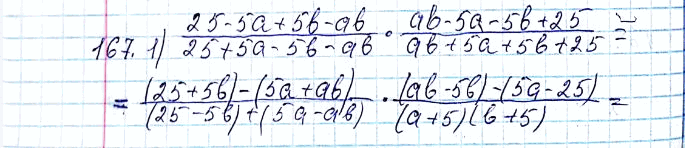 167. 1) (25-5a+5b-ab)/(25+5a-5b-ab) · (ab-5a-5b+25)/(ab+5a+5b+25) =
= ((25+5b)-(5a+ab))/((25-5b)+(5a-ab)) · ((ab-5b)-(5a-25))/((a+5)(b+5)) =